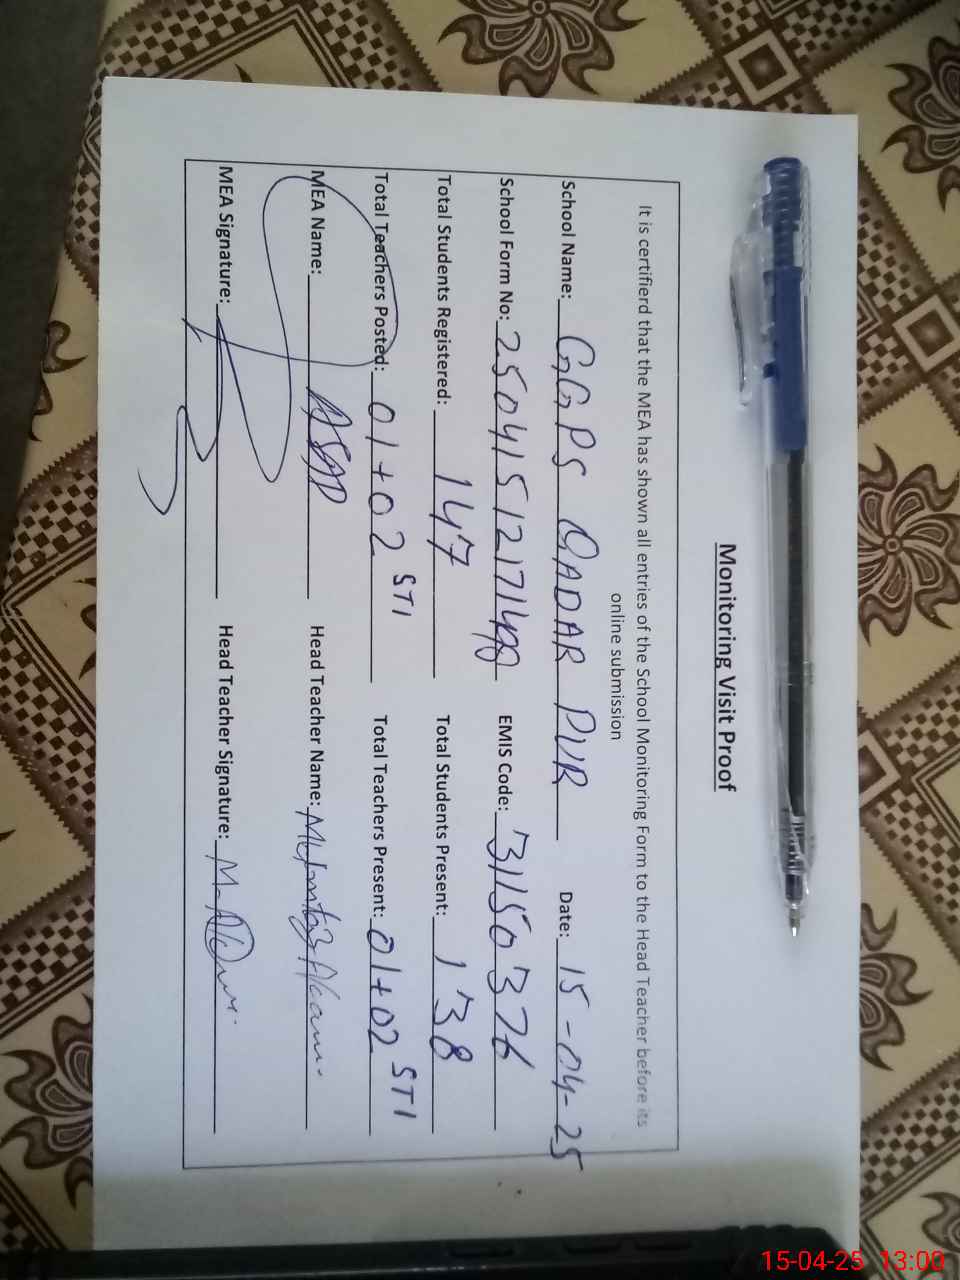 Monitoring Visit Proof
It is certifierd that the MEA has shown all entries of the School Monitoring Form to the Head Teacher before its
online submission
School Name: GGPS QADAR PUR Date: 15-04-25
School Form No: EMIS Code: 31150376
Total Students Registered: 147 Total Students Present: 138
Total Teachers Posted: 01+02 STI Total Teachers Present: 01+02 STI
MEA Name: Head Teacher Name:
MEA Signature: Head Teacher Signature:
15-04-25 13:00